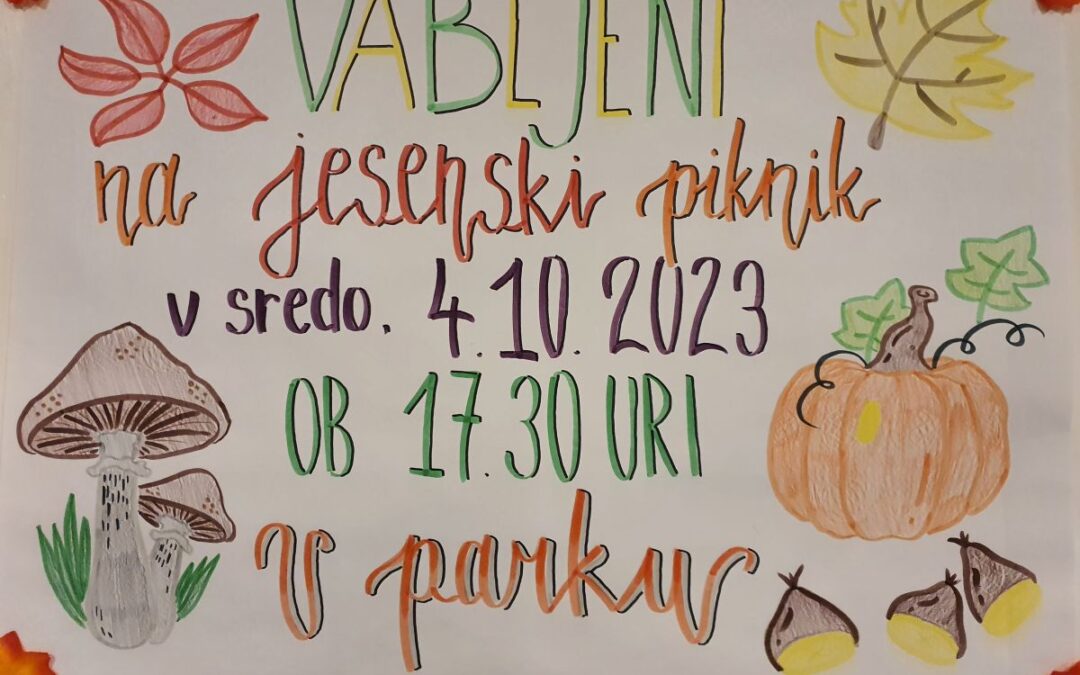 VABLJENI
na jesenski piknik
v sredo, 4.10.2023
OB 17.30 URI
v parku